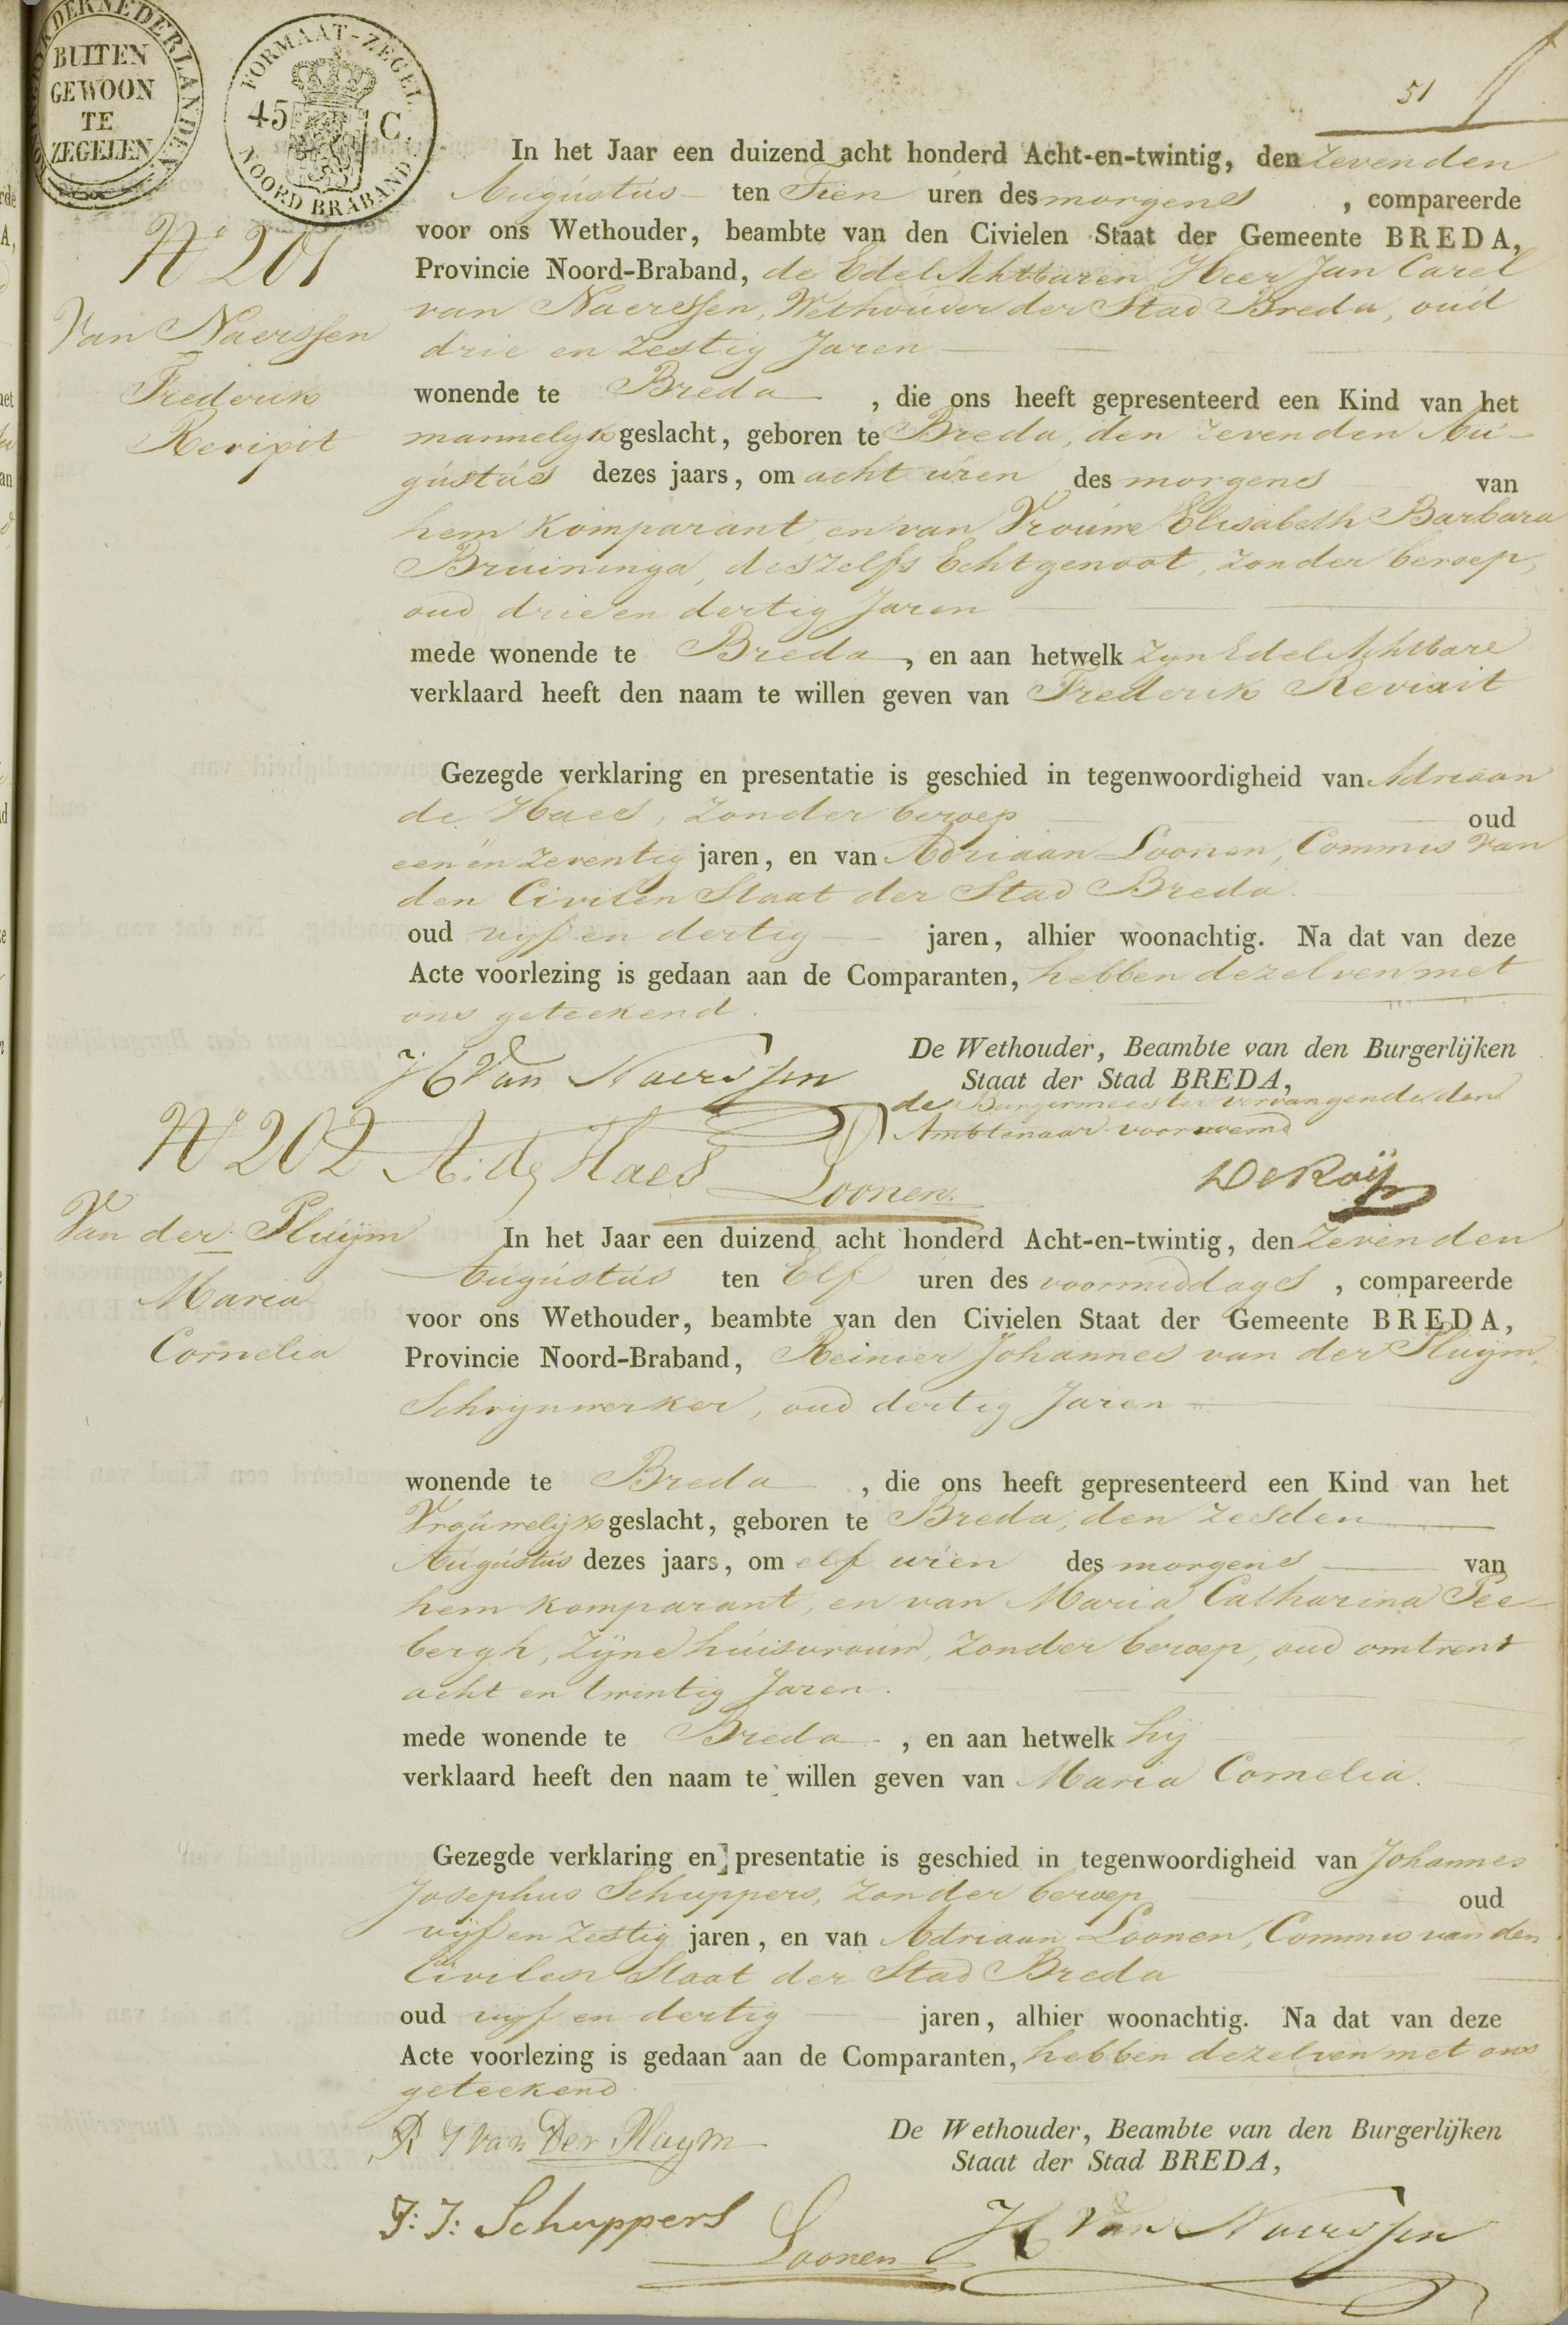 DER NEDERLANDEN
BUITEN
GEWOON
TE
ZEGELEN
FORMAAT-ZEGEL
45 C.
NOORD BRABAND
51
In het Jaar een duizend acht honderd Acht-en-twintig, den zevenden
Augustus ten Tien uren des morgens , compareerde
voor ons Wethouder, beambte van den Civielen Staat der Gemeente BREDA,
Provincie Noord-Braband, de Edel Achtbaren Heer Jan Carel
van Naerssen, Wethouder der Stad Breda, oud
drie en zestig Jaren
wonende te Breda , die ons heeft gepresenteerd een Kind van het
mannelyk geslacht, geboren te Breda, den zevenden Au-
gustus dezes jaars, om acht uren des morgens van
hem komparant, en van Vrouwe Elisabeth Barbara
Bruininga, deszelfs Echtgenoot, zonder beroep,
oud drie en dertig Jaren
mede wonende te Breda , en aan hetwelk zyn Edel Achtbare
verklaard heeft den naam te willen geven van Frederik Revixit
Gezegde verklaring en presentatie is geschied in tegenwoordigheid van Adriaan
de Haes, zonder beroep oud
een en zeventig jaren, en van Adriaan Loonen, Commis van
den Civilen Staat der Stad Breda.
oud vyf en dertig jaren, alhier woonachtig. Na dat van deze
Acte voorlezing is gedaan aan de Comparanten, hebben dezelven met
ons geteekend.
De Wethouder, Beambte van den Burgerlijken
Staat der Stad BREDA,
de Burgermeester vervangende den
Ambtenaar voornoemd
JC Van Naerssen
A: de Haes
Loonen.
De Roy
No 201
Van Naerssen
Frederik
Revixit
No 202
Van der Pluijm
Maria
Cornelia
In het Jaar een duizend acht honderd Acht-en-twintig, den Zevenden
Augustus ten Elf uren des voormiddags , compareerde
voor ons Wethouder, beambte van den Civielen Staat der Gemeente BREDA,
Provincie Noord-Braband, Reinier Johannes van der Pluijm,
Schrynwerker, oud dertig Jaren
wonende te Breda , die ons heeft gepresenteerd een Kind van het
Vrouwelyk geslacht, geboren te Breda, den zesden
Augustus dezes jaars, om elf uren des morgens van
hem komparant, en van Maria Catharina Pee-
bergh, zyne huisvrouw, zonder beroep, oud omtrent
acht en twintig Jaren.
mede wonende te Breda , en aan hetwelk hij
verklaard heeft den naam te willen geven van Maria Cornelia.
Gezegde verklaring en presentatie is geschied in tegenwoordigheid van Johannes
Josephus Schuppers, zonder beroep oud
vyf en zestig jaren, en van Adriaan Loonen, Commis van den
Civilen Staat der Stad Breda
oud vyf en dertig jaren, alhier woonachtig. Na dat van deze
Acte voorlezing is gedaan aan de Comparanten, hebben dezelven met ons
geteekend
De Wethouder, Beambte van den Burgerlijken
Staat der Stad BREDA,
R J Van Der Pluym
J: J: Schuppers
Loonen
JC Van Naerssen